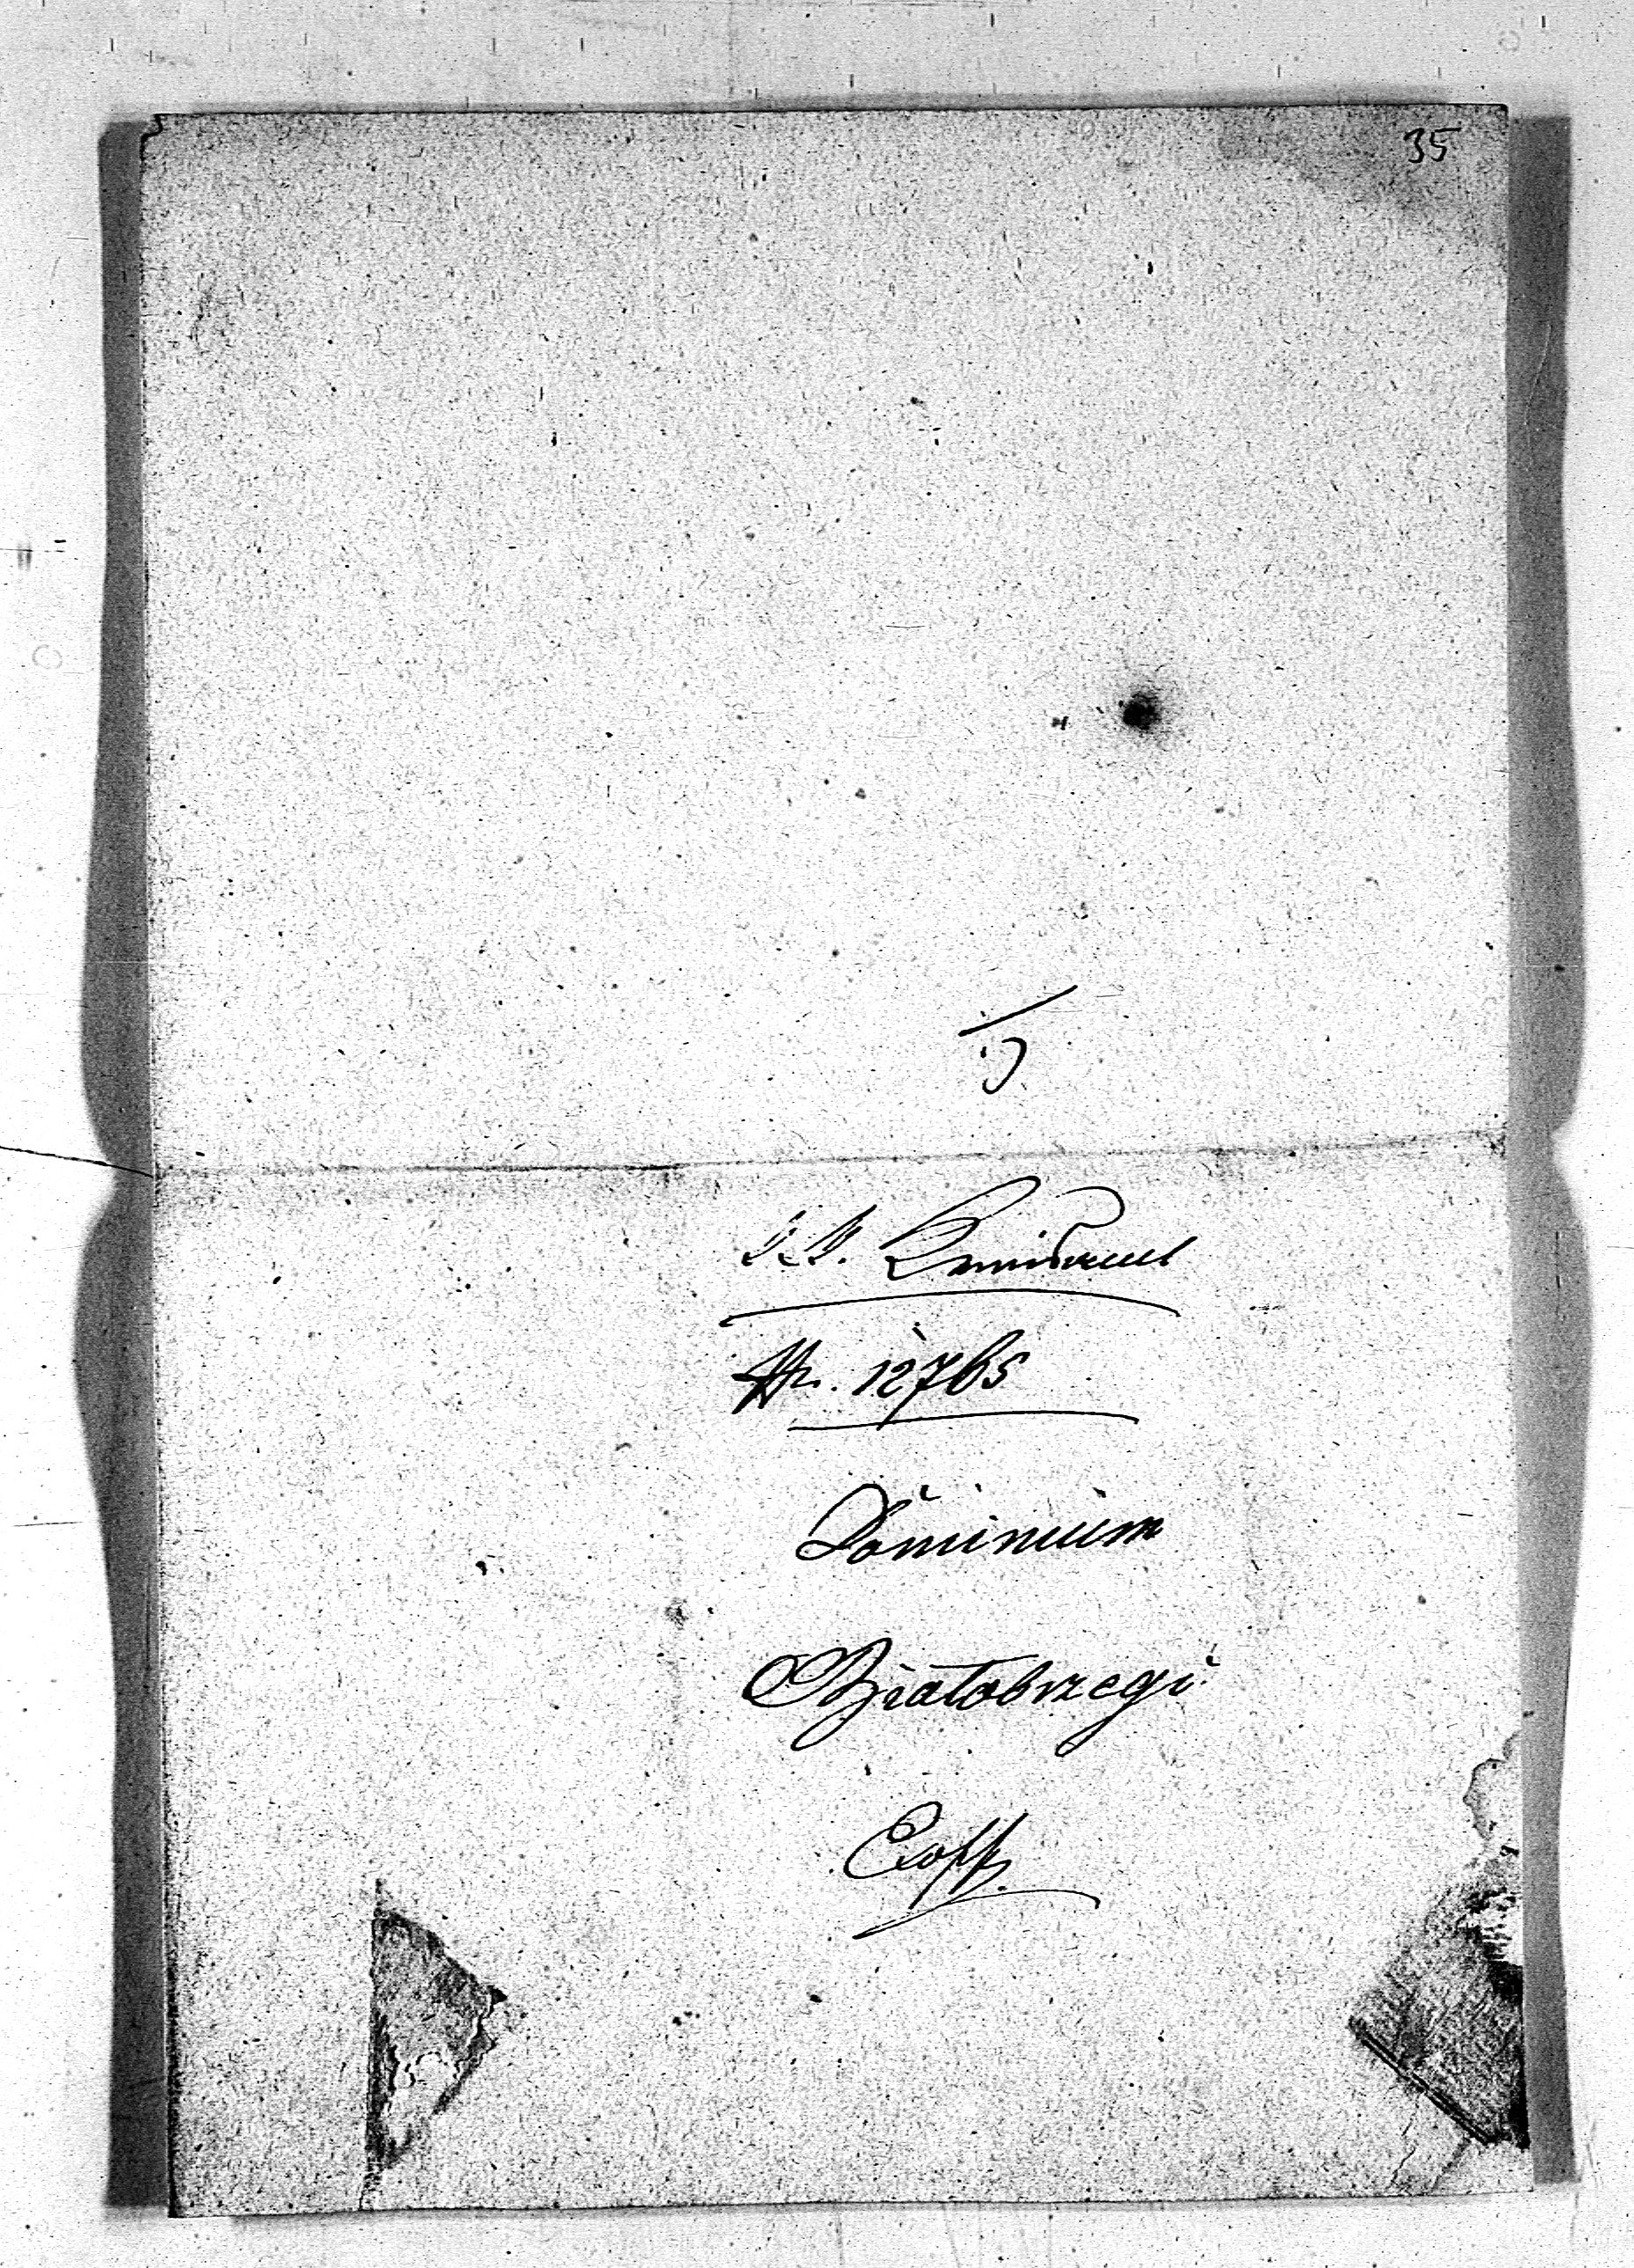 35
K. K. Kreisamt
Nr. 12765
Dominium
Białobrzegi